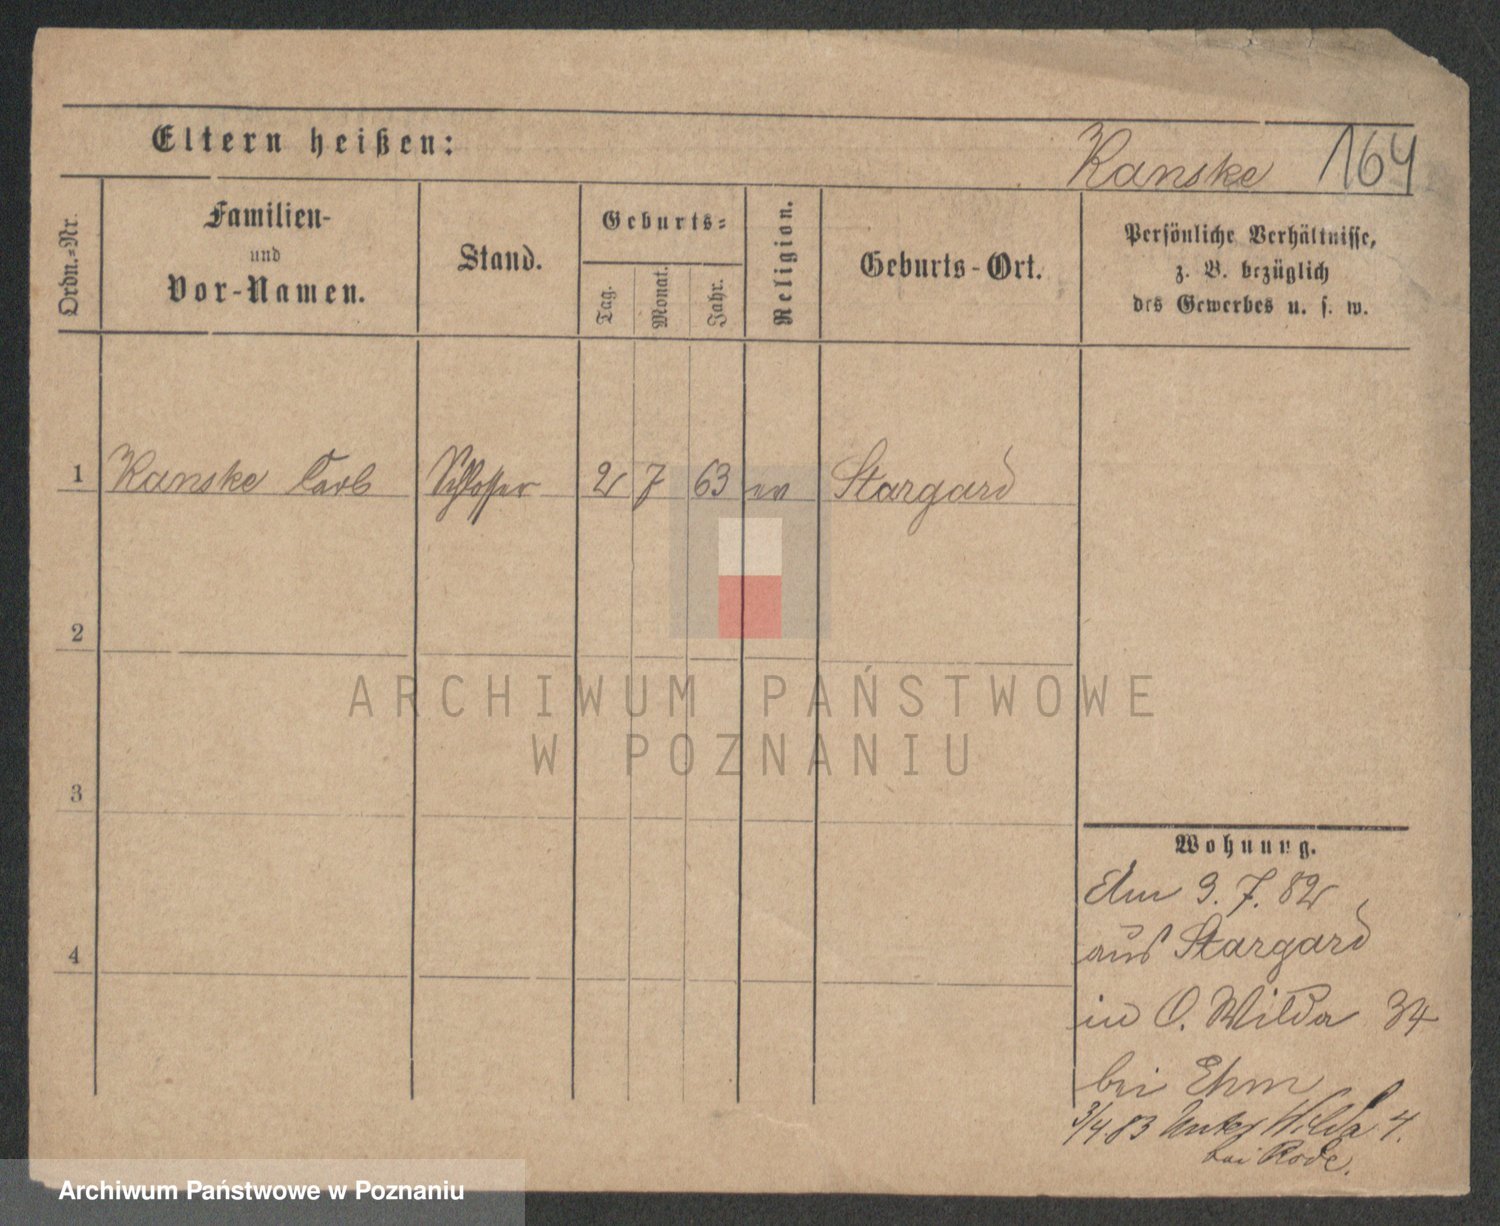 Eltern heißen:
Kanske 164
Ordn.=Nr.
Familien-
und
Vor-Namen.
Stand.
Geburts=
Tag.
Monat.
Jahr.
Religion.
Geburts-Ort.
Persönliche Verhältnisse,
z. B. bezüglich
des Gewerbes u. s. w.
1 Kanske Carl Schlosser 2 7 63 ev Stargard
2
ARCHIWUM PAŃSTWOWE
W POZNANIU
3
4
Wohnung.
Am 3. 7. 82
aus Stargard
in O. Wilda 34
bei Ehm
3/4.83 Unter Wilda 4.
bei Rode.
Archiwum Państwowe w Poznaniu